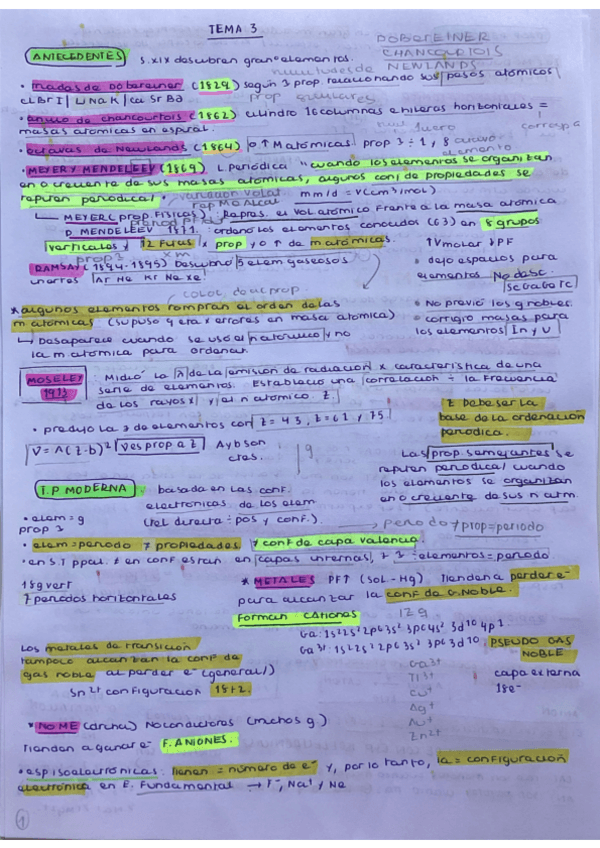 TEMA 3
DOBEREINER
CHANCOURTOIS
NEWLANDS
ANTECEDENTES S. XIX descubren gran nº elementos.
• Triadas de Dobereiner (1829) según 3 prop. relacionando sus pesos atomicos
Cl Br I | Li Na K | Ca Sr Ba prop similares
• anillo de chancourtois (1862) cilindro 16 columnas e hileras horizontales =
masas atomicas en espiral.
• octavas de Newlands (1864) o ↑ M atómicas prop 3 ÷ 1, 8
• MEYER Y MENDELEEV (1869) L. Periódica "cuando los elementos se organizan
en o creciente de sus masas atomicas, algunos conj de propiedades se
repiten periodica/.
mm/d = V (cm³/mol)
MEYER (prop Físicos) Repras. el vol atómico frente a la masa atómica
D. MENDELEEV 1871: ordenó los elementos conocidos (63) en 8 grupos
verticales y 12 filas x prop y o ↑ de m atómicas.
↑Vmolar ↓PF
RAMSAY (1894-1895) Descubrió 5 elem gaseosos
inertes Ar He Kr Ne Xe!
• dejo espacios para
elementos No desc.
Sc Ga Ge Tc
* algunos elementos rompían el orden de las
m atómicas (supuso q era x errores en masa atómica)
• No previó los g nobles.
• corrigio masas para
los elementos In y U
↳ Desaparece cuando se uso el n atómico y no
la m atómica para ordenar.
MOSELEY
1913
: Midió la λ de la emisión de radiación x característica de una
serie de elementos. Estableció una correlación ÷ la frecuencia
de los rayos x y el n atómico Z.
• predijo la 3 de elementos con Z = 43, Z = 61 y 75
Z Debe ser la
base de la ordenación
periodica.
V = A(Z-b)² V es prop a Z A y b son
ctes.
Las prop semejantes se
repiten periodica/ cuando
los elementos se organizan
en o creciente de sus n atm.
T.P MODERNA: basada en las conf.
electronicas de los elem
(rel directa ÷ pos y conf.)
• elem = g
prop 3
→ periodo ≠ prop = periodo
• elem = periodo ≠ propiedades y conf de capa valencia.
• en S.T ppal. ≠ en conf estan en capas internas, ≠ 3 ÷ elementos = periodo.
18 g vert
7 periodos horizontales
* METALES PF↑ (sol - Hg) Tienden a perder e⁻
para alcanzar la conf de G. Noble.
Forman CAtiones
12g
Ga: 1s² 2s² 2p⁶ 3s² 3p⁶ 4s² 3d¹⁰ 4p¹
Ga³⁺: 1s² 2s² 2p⁶ 3s² 3p⁶ 3d¹⁰ PSEUDO GAS
NOBLE
Los metales de transición
tampoco alcanzan la conf de
gas noble al perder e⁻ (general/)
Sn²⁺ configuración 18+2.
Ga³⁺
Tl³⁺
Cu⁺
Ag⁺
Au⁺
Zn²⁺
capa externa
18e⁻
* NO ME (drcha) No conductores (michos g)
Tienden a ganar e⁻ F. ANIONES.
• esp isoelectrónicas: tienen = número de e⁻ y, por lo tanto, la = configuración
electrónica en E. Fundamental → F⁻, Na⁺ y Ne
1